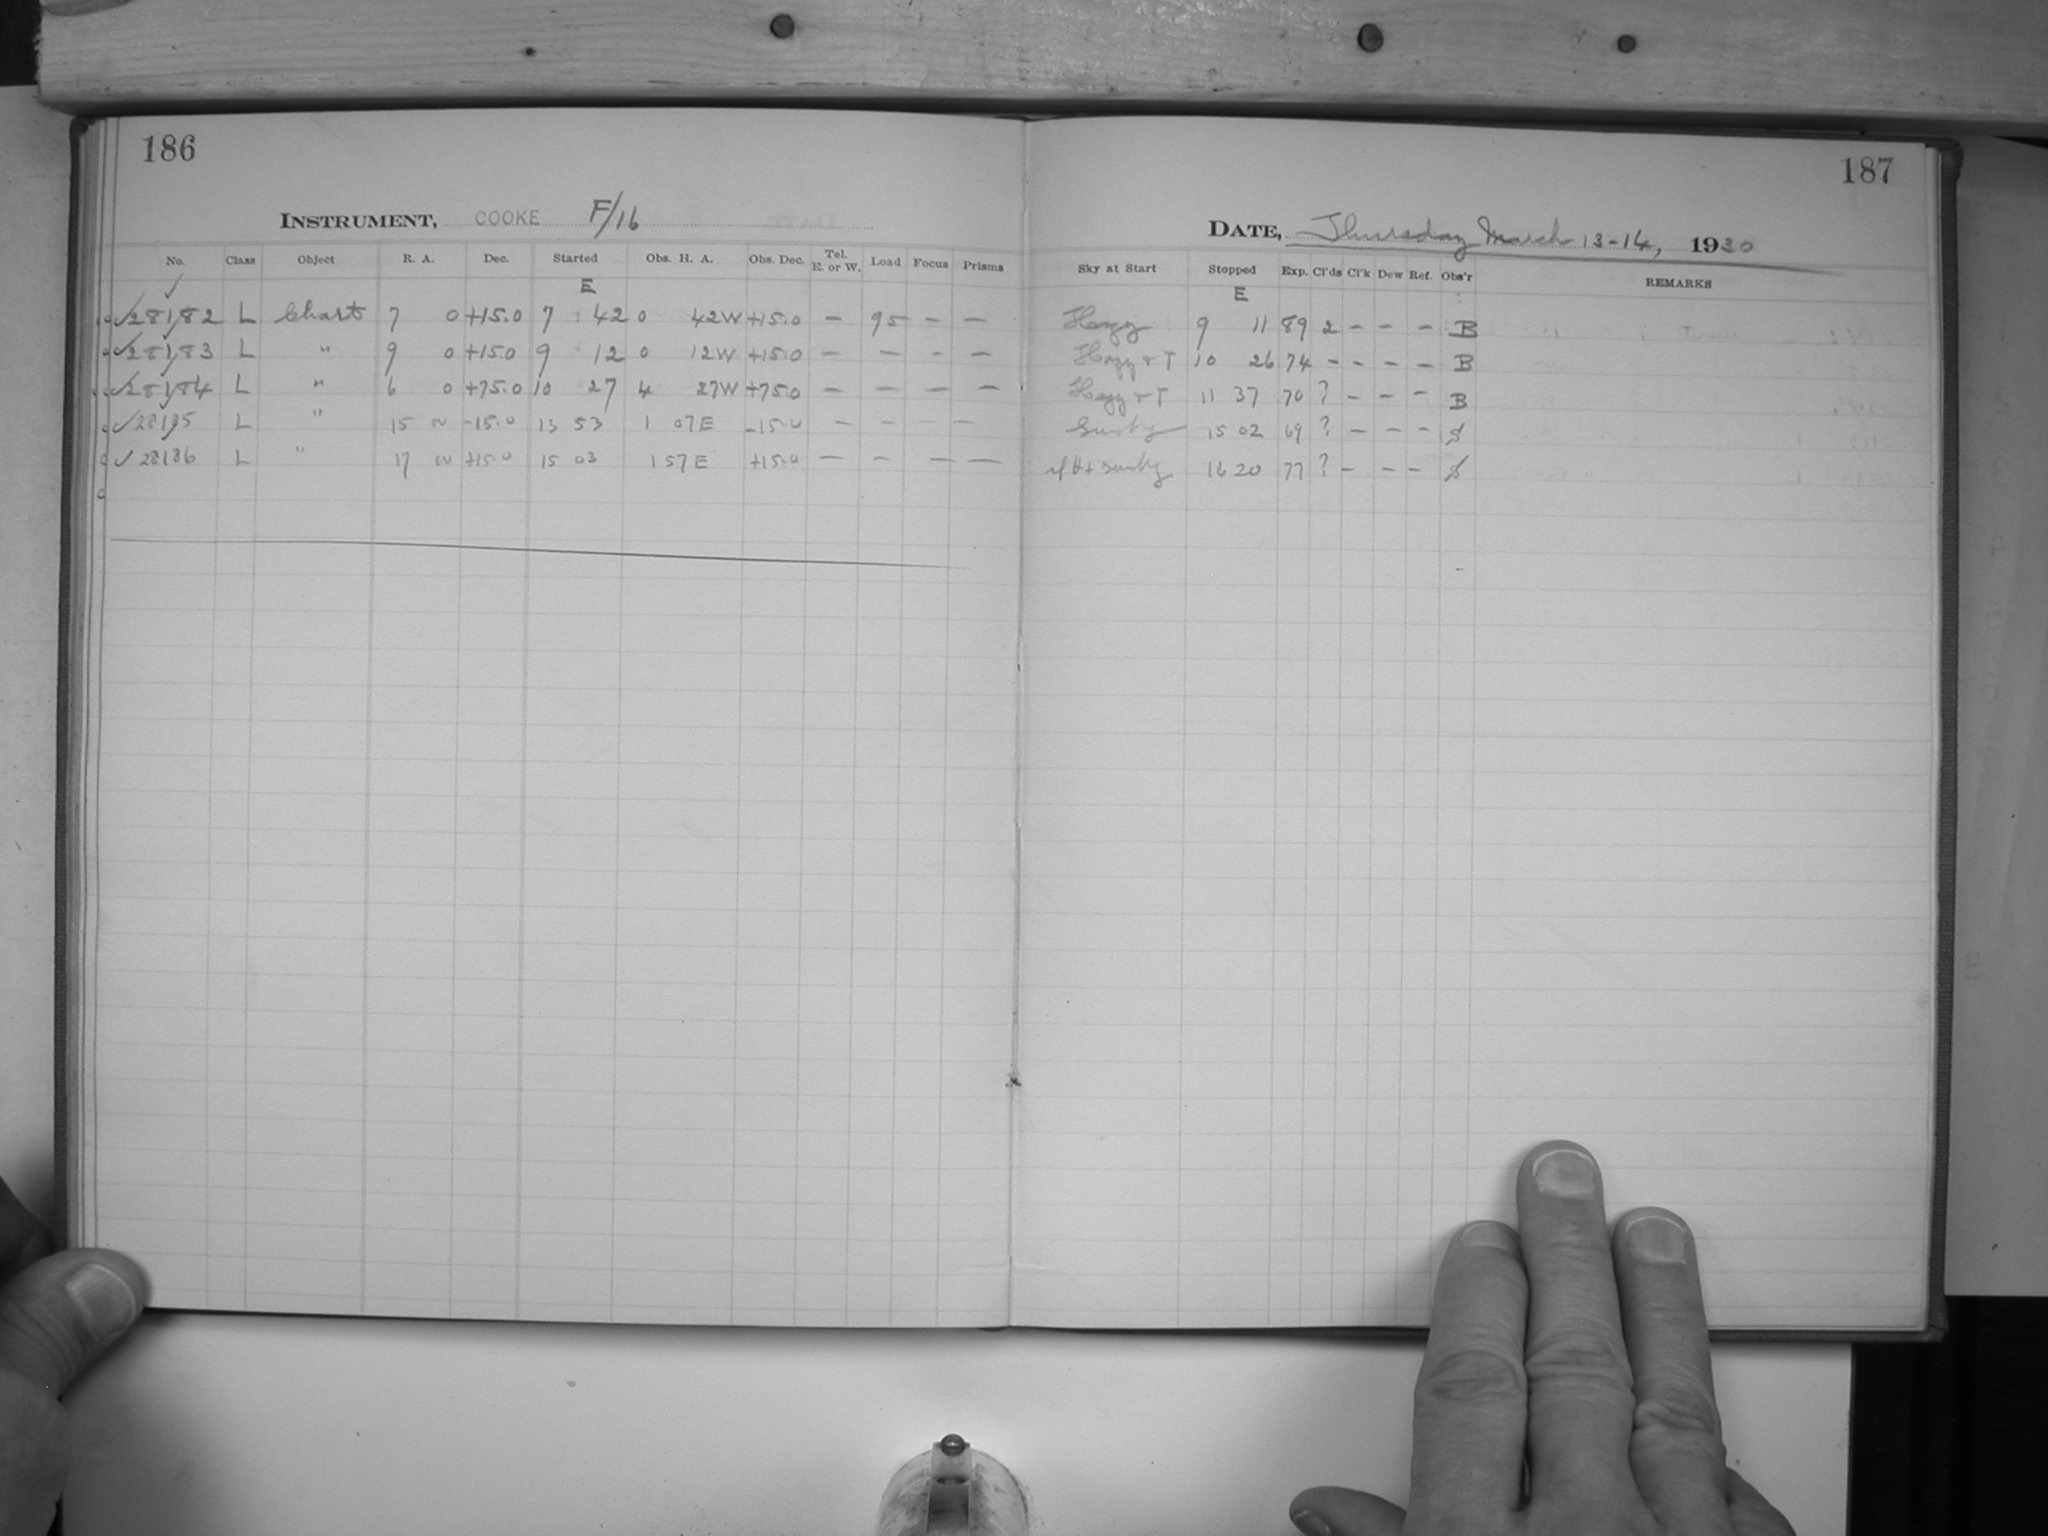 186
INSTRUMENT, COOKE F/16
No. Class Object R. A. Dec. Started Obs. H. A. Obs. Dec. Tel. E. or W. Load Focus Prisms
E
28182 L Chart 7 0 +15.0 7 42 0 42W +15.0 — 95 — —
28183 L " 9 0 +15.0 9 12 0 12W +15.0 — — — —
28184 L " 6 0 +75.0 10 27 4 27W +75.0 — — — —
28185 L " 15 0 -15.0 13 53 1 07E -15.0 — — — —
28186 L " 17 0 +15.0 15 03 1 57E +15.0 — — — —
187
DATE, Thursday March 13-14, 1930
Sky at Start Stopped Exp. Cl'ds Cl'k Dew Ref. Obs'r REMARKS
E
Hazy 9 11 89 2 - - - B
Hazy + T 10 26 74 - - - - B
Hazy + T 11 37 70 ? - - - B
15 02 69 ? - - - S
16 20 77 ? - - - S